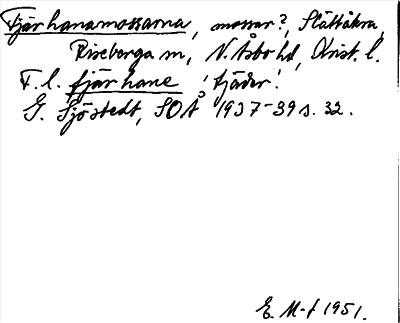 Fjärhanamossarna, mossar?, Slättåkra,
Riseberga sn, N. Åsbo hd, Krist. l.
F. l. fjärhane 'fjäder'.
G. Sjöstedt, SOÅ 1937-39 s. 32.
E. M-f 1951.